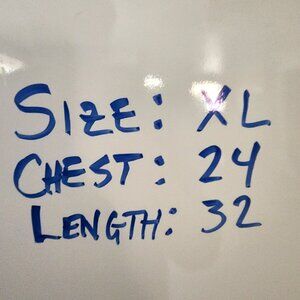 SIZE: XL
CHEST: 24
LENGTH: 32